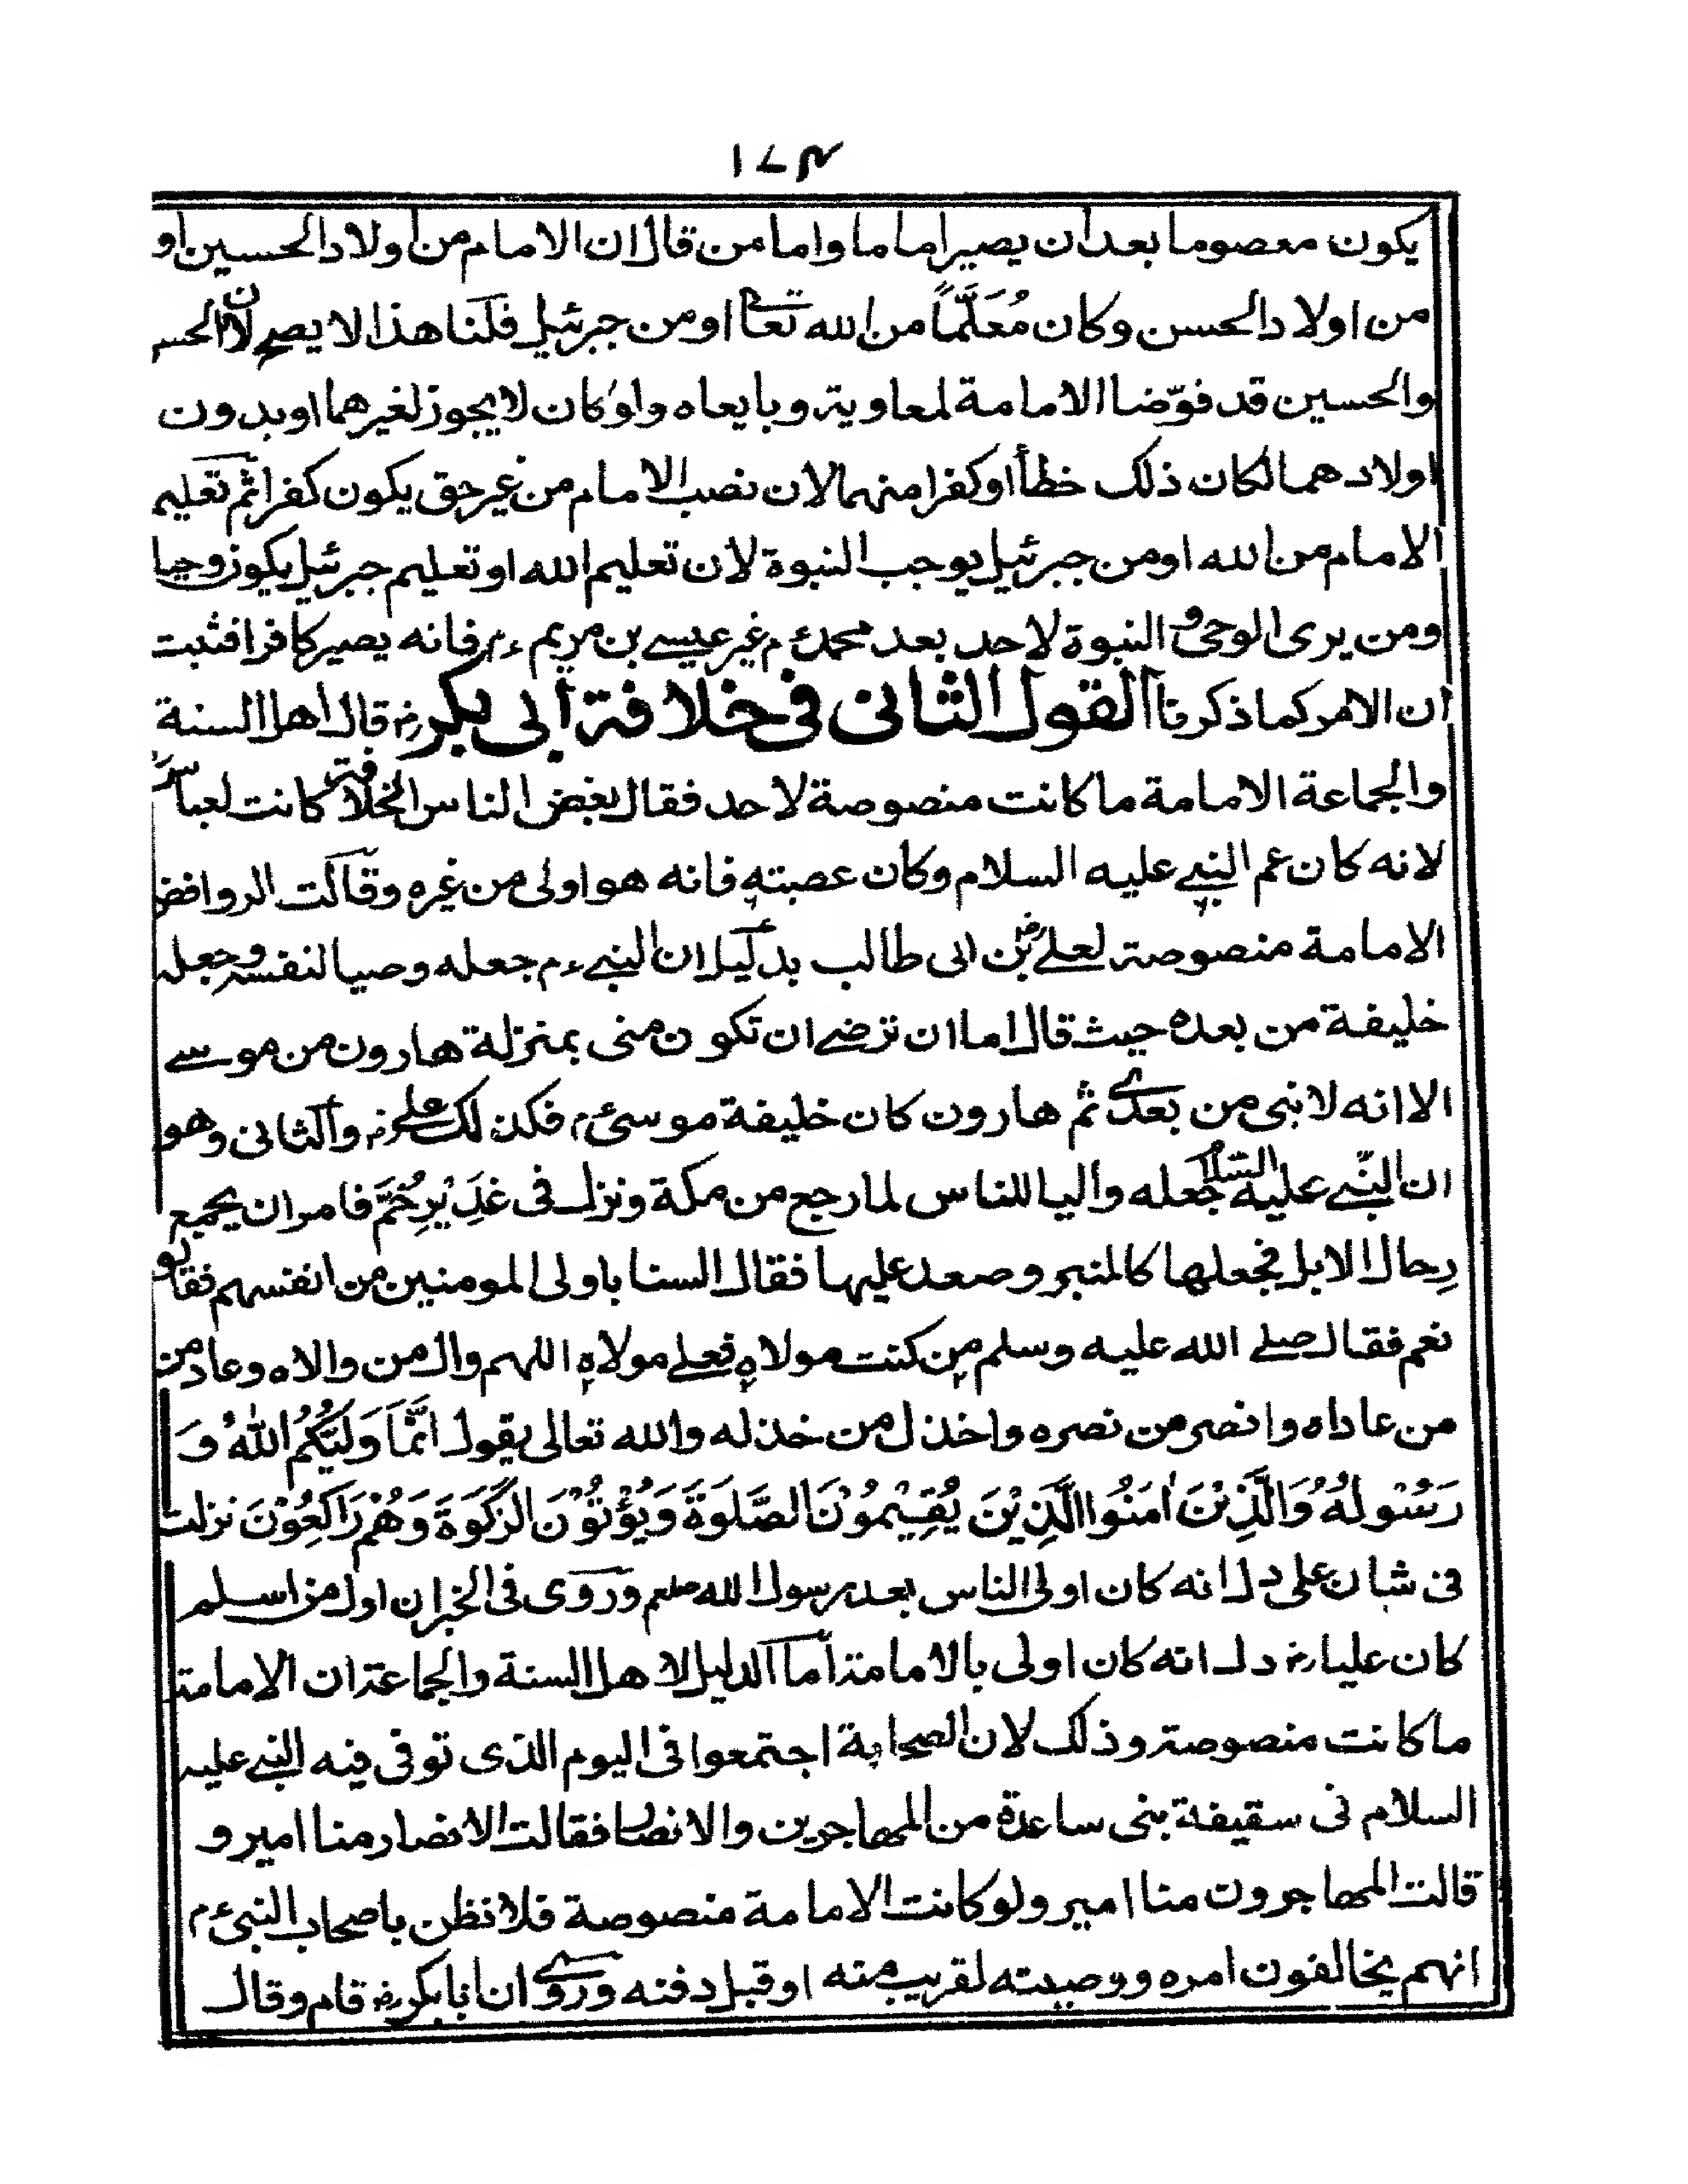 ١٧٤
يكون معصوما بعد ان يصير اماما واما من قال ان الامام من اولاد الحسين او
من اولاد الحسن وكان مُعَلَّماً من الله تعالى او من جبرئيل قلنا هذا لا يصح لان الحسن
والحسين قد فوّضا الامامة لمعاوية وبايعاه ولو كان لا يجوز لغيرهما او بدون
اولادهما لكان ذلك خطأ او كفرا منهما لان نصب الامام من غير حق يكون كفرا ثم تعليم
الامام من الله او من جبرئيل يوجب النبوة لان تعليم الله او تعليم جبرئيل يكون وحيا
ومن يرى الوحى و النبوة لاحد بعد محمد ءم غير عيسے بن مريم ءم فانه يصير كافرا فثبت
ان الامر كما ذكرنا القول الثانى فى خلافة أبى بكر رضـ قال اهل السنة
والجماعة الامامة ما كانت منصوصة لاحد فقال بعض الناس الخلافة كانت لعباس رضـ
لانه كان عم النبے عليه السلام وكان عصبته فانه هو اولى من غيره وقالت الروافض
الامامة منصوصة لعلے رضـ بن ابى طالب بدليل ان النبے ءم جعله وصيا لنفسه وجعله
خليفة من بعده حيث قال اما ان ترضے ان تكون منى بمنزلة هارون من موسے
الا انه لا نبى من بعدى ثم هارون كان خليفة موسى ءم فكذلك علے رضـ والثانى وهو
ان النبّے عليه السلام جعله واليا للناس لما رجع من مكة ونزل فى غَدِيْرِ خُمّ فامر ان يجمع
رِحال الابل فجعلها كالمنبر وصعد عليها فقال السنا باولى المومنين من انفسهم فقالو
نعم فقال صلے الله عليه وسلم من كنت مولاه فعلے مولاه اللهم وال من والاه وعاد من
من عاداه وانصر من نصره واخذل من خذله والله تعالى يقول اِنَّمَا وَلِيُّكُمُ اللهُ وَ
رَسُوْلُهُ وَالَّذِيْنَ اٰمَنُوا الَّذِيْنَ يُقِيْمُوْنَ الصَّلٰوةَ وَيُؤْتُوْنَ الزَّكٰوةَ وَهُمْ رَاكِعُوْنَ نزلت
فى شان على دل انه كان اولى الناس بعد رسول الله صلعم وروى فى الخبر ان اول من اسلم
كان عليا رضـ دل انه كان اولى بالامامة أما الدليل لاهل السنة والجماعة ان الامامة
ما كانت منصوصة وذلك لان الصحابة اجتمعوا فى اليوم الذى توفى فيه النبے عليه
السلام فى سقيفة بنى ساعدة من المهاجرين والانصار فقالت الانصار منا امير و
قالت المهاجرون منا امير ولو كانت الامامة منصوصة فلا نظن باصحاب النبى ءم
انهم يخالفون امره ووصيته لقريب منه او قبل دفنه وروى ان ابا بكر رضـ قام وقال